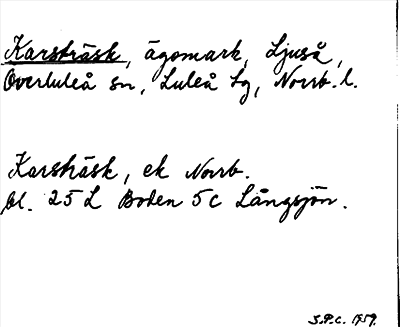 Karsträsk, ägomark, Ljuså,
Överluleå sn, Luleå tg, Norrb. l.
Karsträsk, ek Norrb.
bl. 25 L Boden 5 c Långsjön.
S.P.C. 1959.